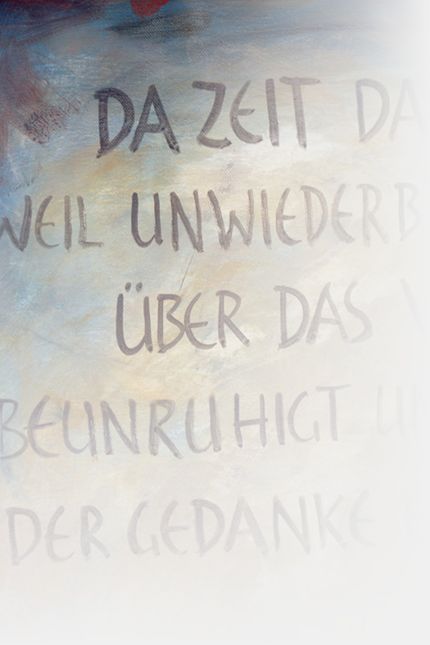 DA ZEIT DA
WEIL UNWIEDERB
ÜBER DAS
BEUNRUHIGT U
DER GEDANKE